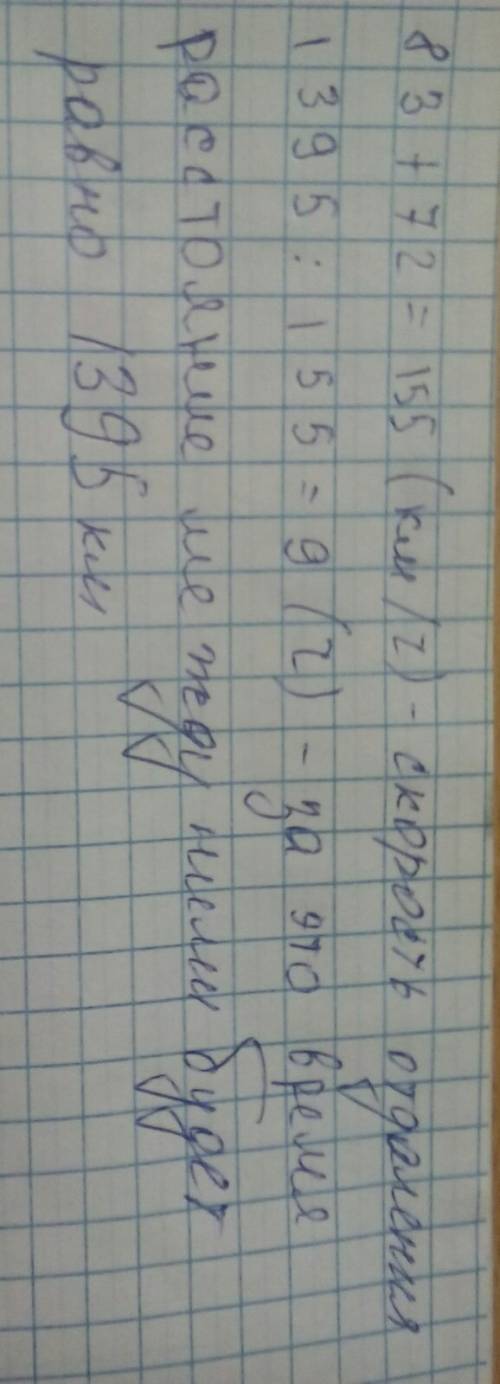 83+72=155 (км/ч)- скорость отдаления
1395:155=9 (ч) - за это время
расстояние между ними будет
равно 1395 км